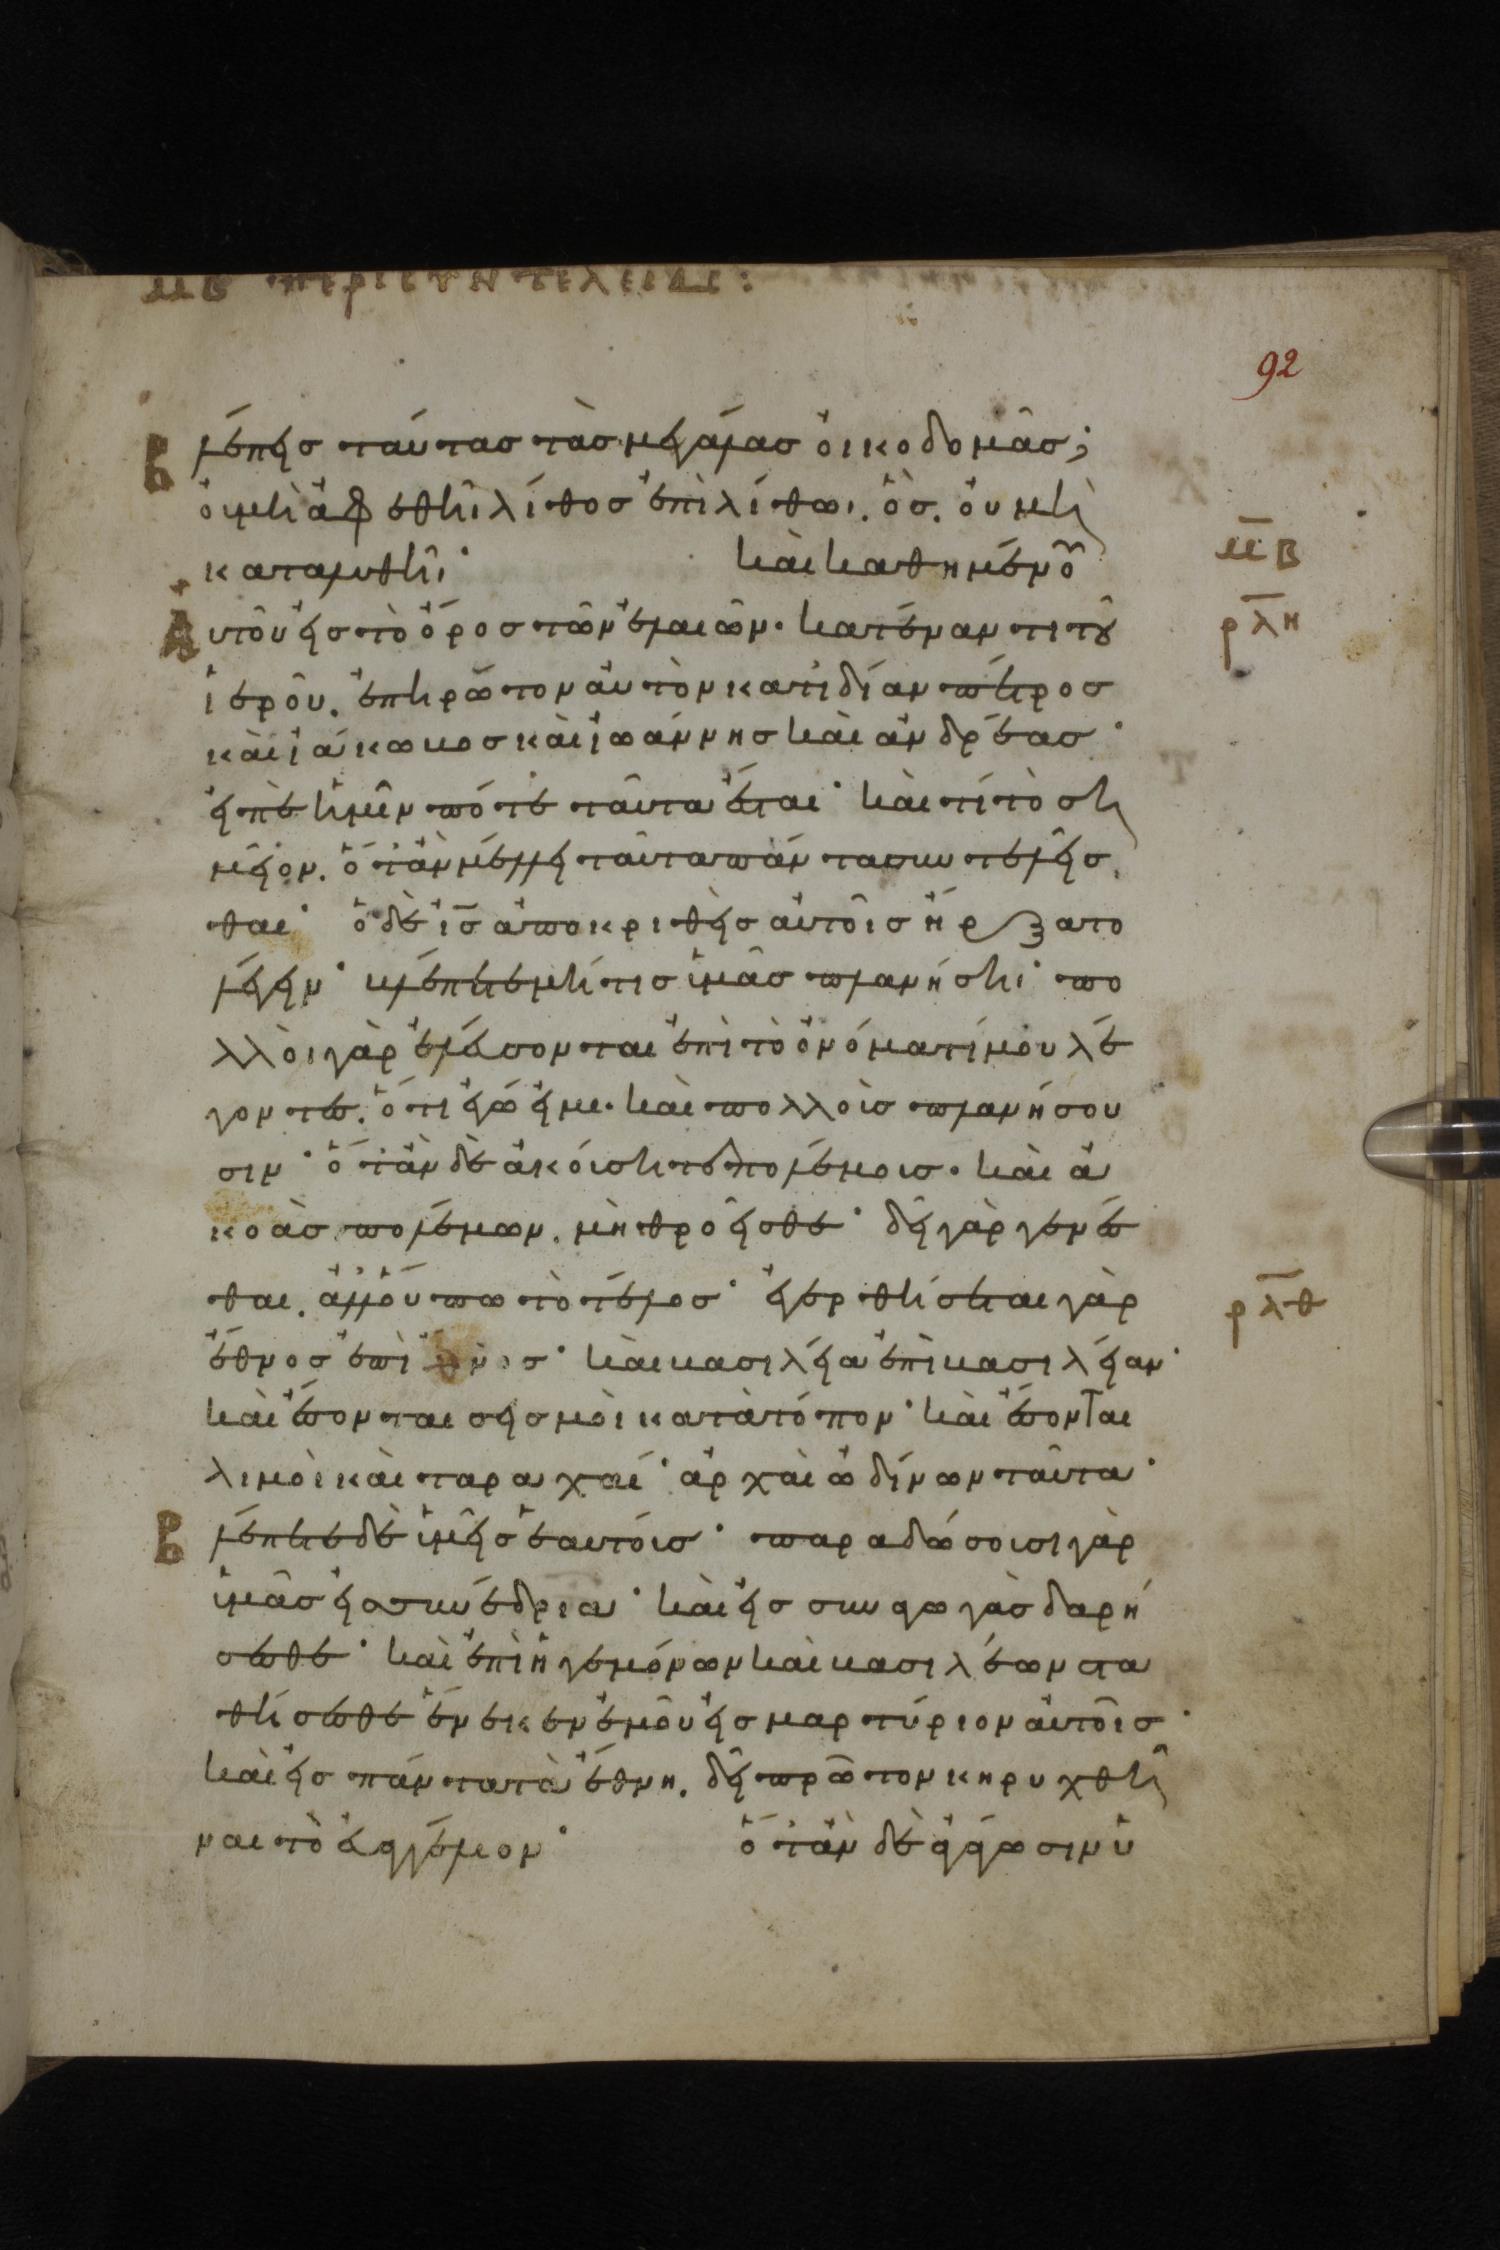 μβ περι συντελειας:
92
Βλέπεις ταύτας τὰς μεγάλας ὀικοδομὰς;
ὀυ μὴ ἀφεθῆι λίθος ἐπὶ λίθωι. ὃς. ὀυ μὴ
καταλυθῆι· καὶ καθημένου
μ̅β̅
Αυτοῦ εἰς τὸ ὄρος τῶν ἐλαιῶν· κατέναντι τοῦ
ρ̅λ̅η̅
ἱεροῦ. ἐπηρώτον αὐτὸν κατιδίαν πέτρος
καὶ ἰάκωβος καὶ ἰωάννης καὶ ἀνδρέας·
εἰπὲ ἡμῖν πότε ταῦτα ἔσται· καὶ τί τὸ ση
μεῖον. ὅταν μέλλει ταῦτα πάντα συντελεῖσ
θαι· ὁ δὲ ι̅ς̅ ἀποκριθεὶς αὐτοῖς ἤρξατο
λέγειν· βλέπετε μή τις ὑμᾶς πλανήσηι· πο
λλοὶ γὰρ ἐλεύσονται ἐπὶ τὸ ὀνόματί μου λέ
γοντες. ὅτι ἐγώ εἰμι. καὶ πολλοὺς πλανήσου
σιν· ὅταν δὲ ἀκούσητε πολέμους. καὶ ἀ
κοὰς πολέμων. μὴ θροεῖσθε· δεῖ γὰρ γενέσ
θαι. ἀλλ' οὔπω τὸ τέλος· ἐγερθήσεται γὰρ
ρ̅λ̅θ̅
ἔθνος ἐπὶ ἔθνος· καὶ βασιλεία ἐπὶ βασιλείαν·
καὶ ἔσονται σεισμοὶ κατὰ τόπον· καὶ ἔσονται
λιμοὶ καὶ ταραχαί· ἀρχαὶ ὠδίνων ταῦτα·
Βλέπετε δὲ ὑμεῖς ἑαυτούς· παραδώσουσι γὰρ
ὑμᾶς εἰς συνέδρια· καὶ εἰς συναγωγὰς δαρή
σεσθε· καὶ ἐπὶ ἡγεμόνων καὶ βασιλέων στα
θήσεσθε ἕνεκεν ἐμοῦ εἰς μαρτύριον αὐτοῖς·
καὶ εἰς πάντα τὰ ἔθνη. δεῖ πρῶτον κηρυχθῆ
ναι τὸ ἐυαγγέλιον· ὅταν δὲ ἀγάγωσιν ὑ